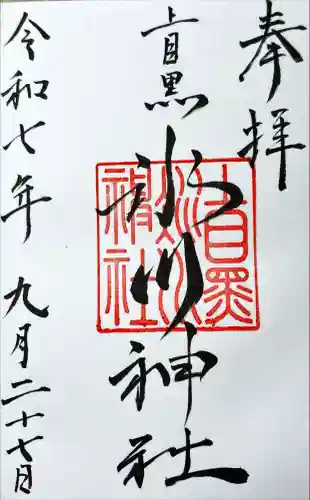 奉拝
上目黒
氷川神社
上目黒
氷川神社
令和七年九月二十七日